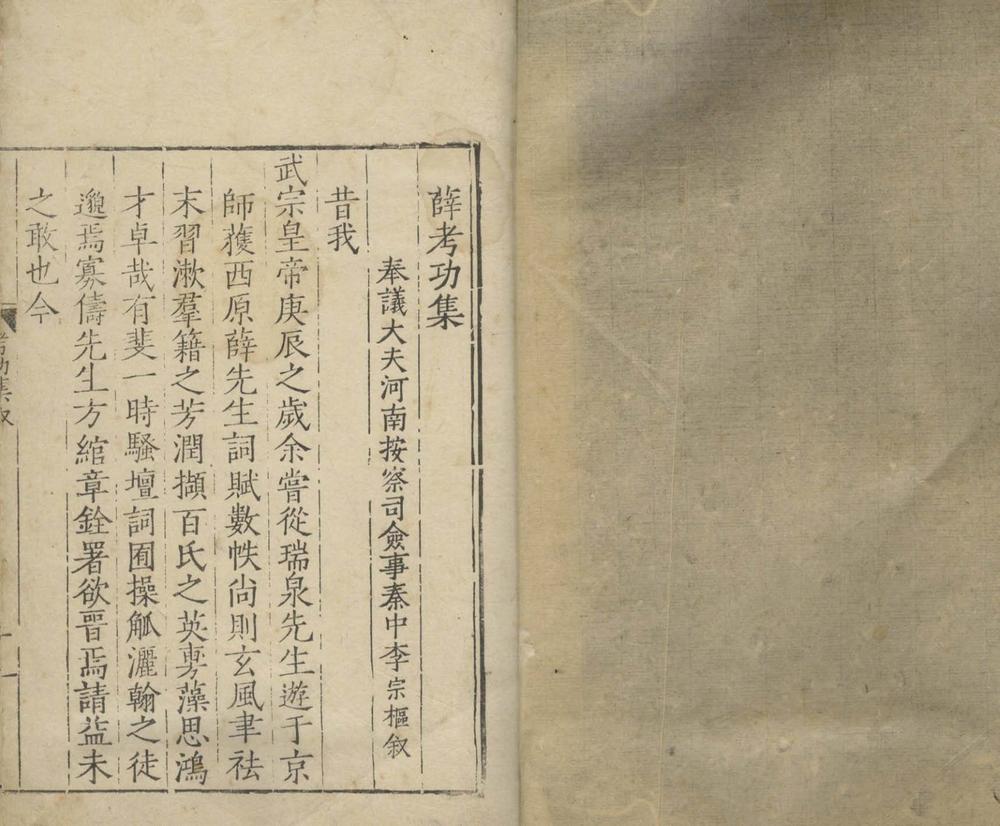 薛考功集
奉議大夫河南按察司僉事秦中李宗樞叙
昔我
武宗皇帝庚辰之歲余嘗從瑞泉先生遊于京
師蒦西原薛先生詞賦數帙尙則玄風聿祛
末習漱羣籍之芳潤擷百氏之英旉藻思鴻
才卓哉有斐一時騷壇詞囿操觚灑翰之徒
邈焉寡儔先生方綰章銓署欲晋焉請益未
之敢也今
考功集叙
一